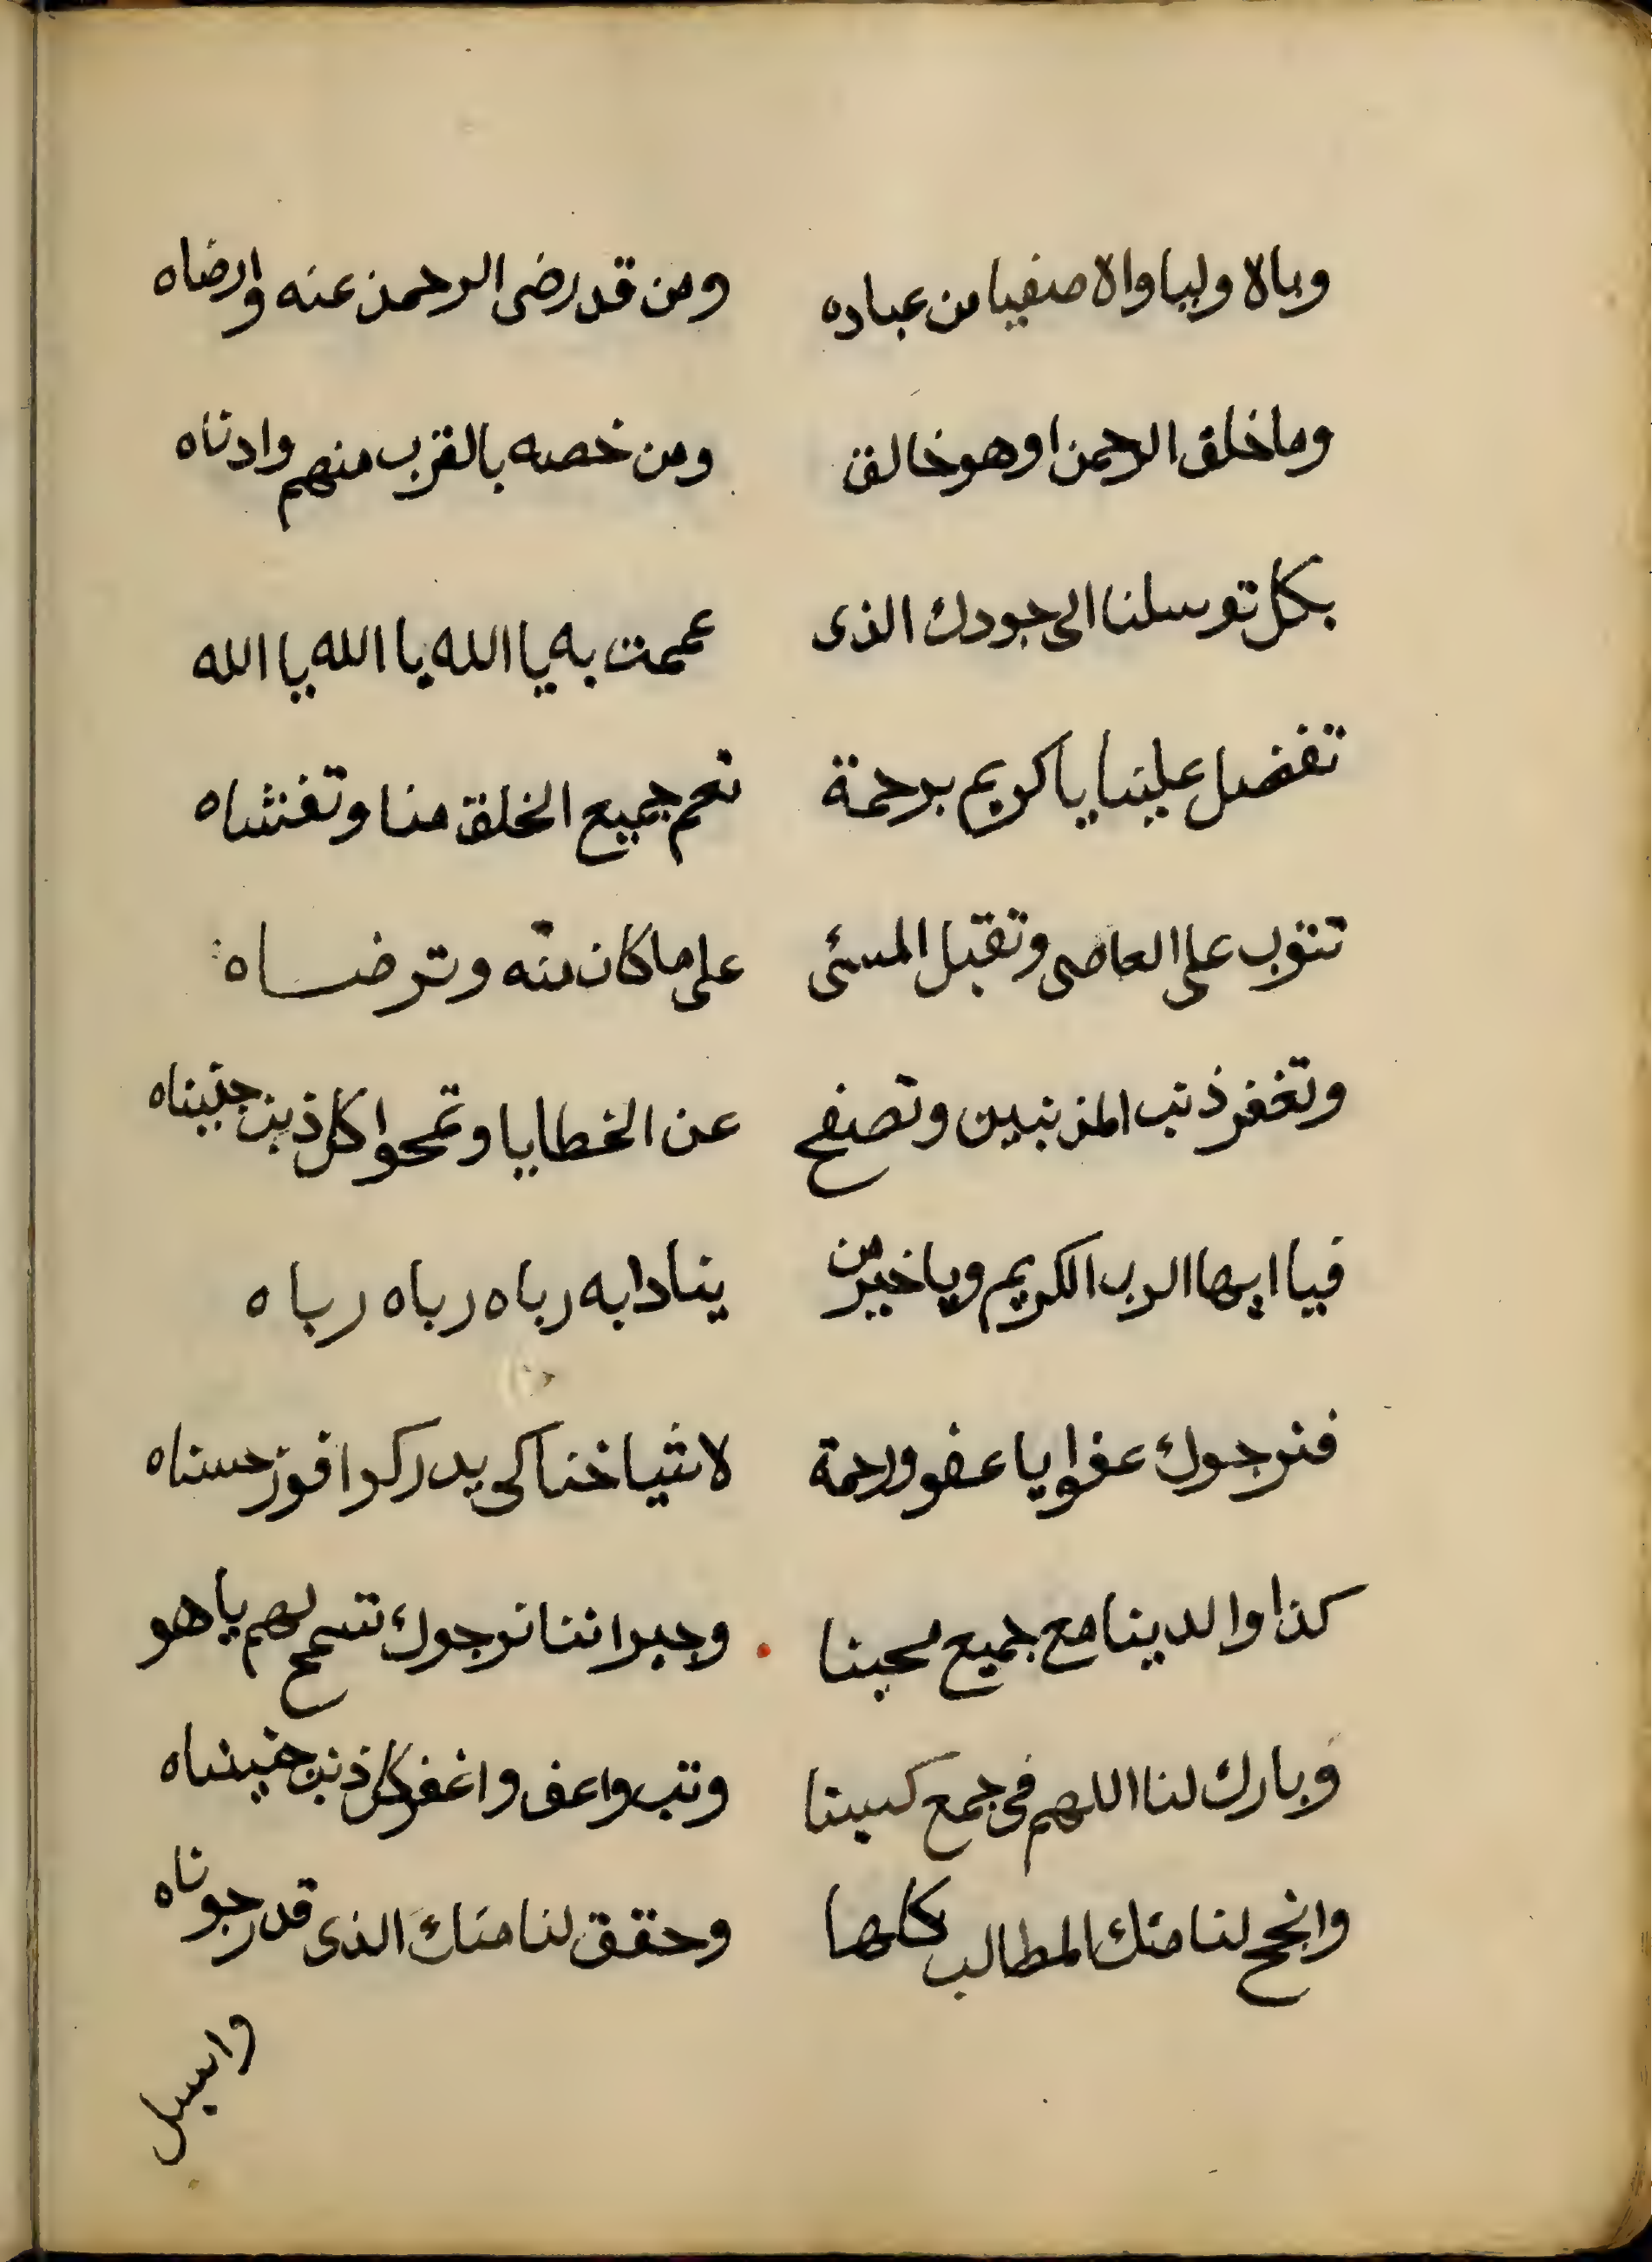 وبالاوليا والاصفيا من عباده ومن قد رضى الرحمن عنه وارضاه
وما خلق الرحمن او هو خالق ومن خصه بالقرب منهم وادناه
بكل توسلنا الى جودك الذى عممت به يا الله يا الله يا الله
تفضل علينا يا كريم برحمة تعم جميع الخلق منا وتغشاه
تتوب على العاصى وتقبل المسئى على ما كان منه وترضاه
وتغفر ذنب المذنبين وتصفح عن الخطايا وتمحوا كل ذنب جنيناه
فيا ايها الرب الكريم ويا خير من ينادا به رباه رباه رباه
فنرجوك عفوا يا عفو ورحمة لاشياخنا كى يدركوا فوز حسناه
كذا والدينا مع جميع محبنا وجيراننا نرجوك تسمح لهم يا هو
وبارك لنا اللهم فى جمع كسبنا وتب واعف واغفر كل ذنب جنيناه
وانجح لنا منك المطالب كلها وحقق لنا منك الذى قد رجوناه
واسبل